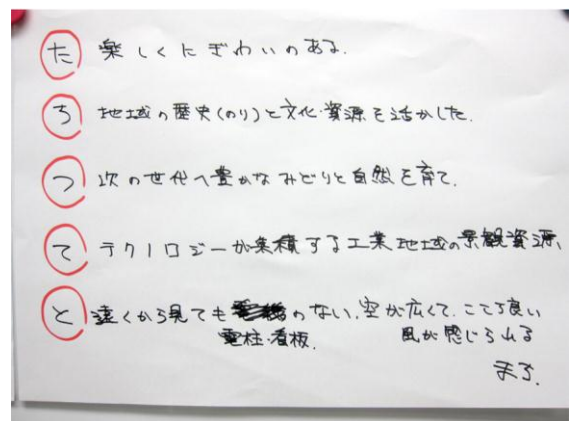 た 楽しくにぎわいのある.
ち 地域の歴史(のり)と文化・資源を活かした.
つ 次の世代へ豊かなみどりと自然を育て.
て テクノロジーが集積する工業地域の景観資源、
と 遠くから見ても のない.空が広くて.ここち良い
電柱・看板. 風が感じられる
まち.